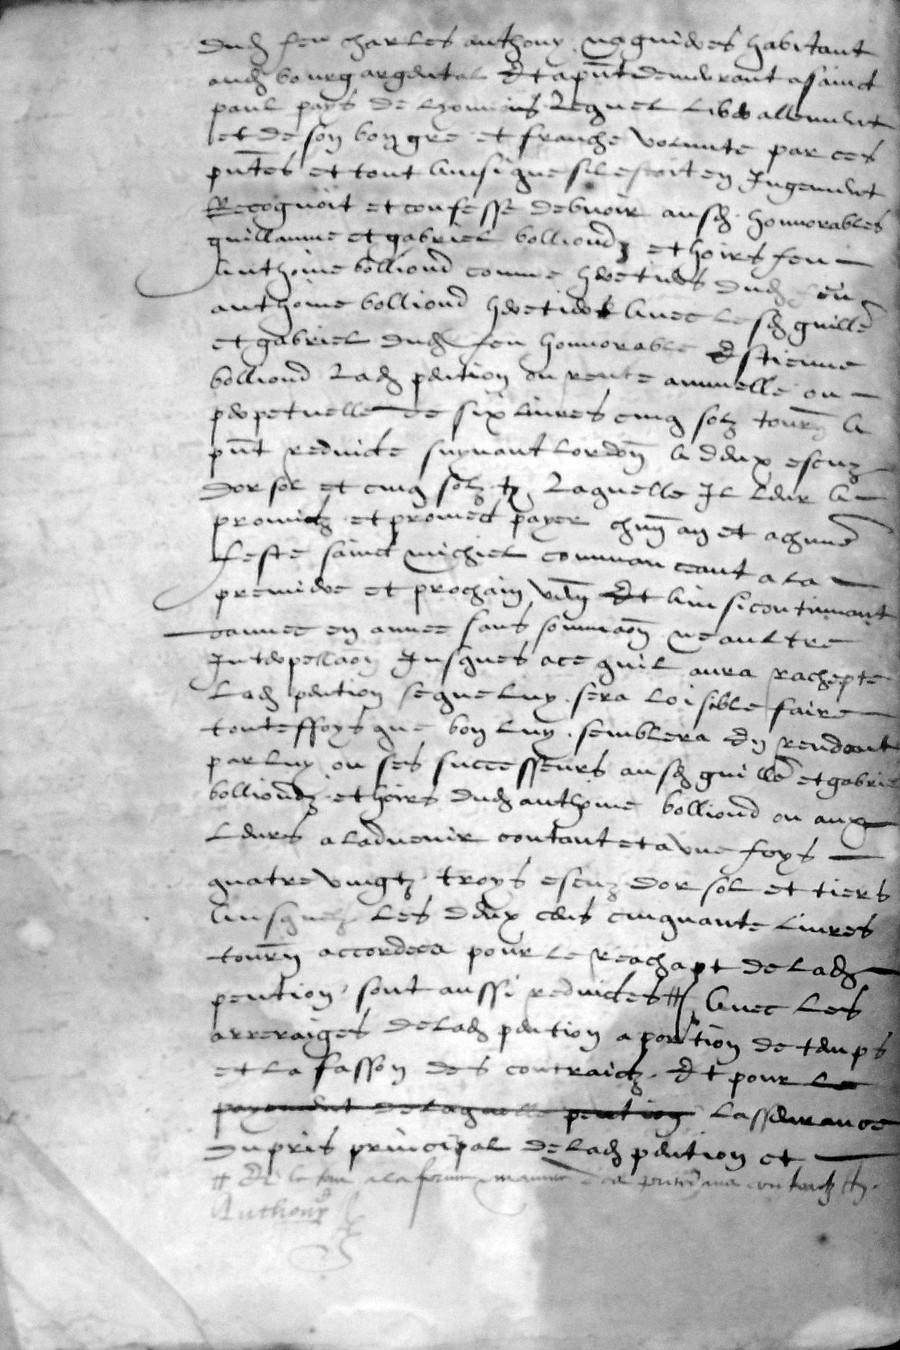 dud feu charles anthony naguieres habitant
aud bourg argental Et a pnt demeurant a sainct
paul pays de lequel liberallement
et de son bon gre et franche volunte par ces
pntes et tout ainsi que sil estoit en Jugement
Recognoit et confesse debvoir ausd honnorables
guillaume et gabriel bolliond et hoirs feu
anthoine bolliond comme heretiers dud feu
anthoine bolliond heretier avec lesd guille
et gabriel dud feu honnorable Estienne
bolliond Lad pention ou rente annuelle ou
perpetuelle de six livres cinq solz tourn a
pnt reduicte suyvant lordon a deux escuz
dor sol et cinq solz tz Laquelle Il leur a
promis et promect payer chun an et a chune
feste sainct michiel commanceant a la
premiere et prochain ven Et ainsi continuant
dannee en annee sans sommaon ne aultre
Interpellaon Jusques a ce quil aura rachepte
Lad pention ce que luy sera loisible faire
touteffoys que bon luy semblera En rendant
par luy ou ses successeurs ausd guille et gabriel
bolliondz et hoirs dud anthoine bolliond ou aux
Leurs a ladvenir contant et a une foys
quatre vingtz troys escuz dor sol et tiers
ausquelz les deux cens cinquante livres
tourn accordees pour le reachapt de lad
pention sont aussi reduictes avec les
arreraiges de lad pention a portion de temps
et la fasson des contraictz Et pour le
payement de laquelle pention lasseurance
du pris principal de lad pention et
a la forme
Anthony